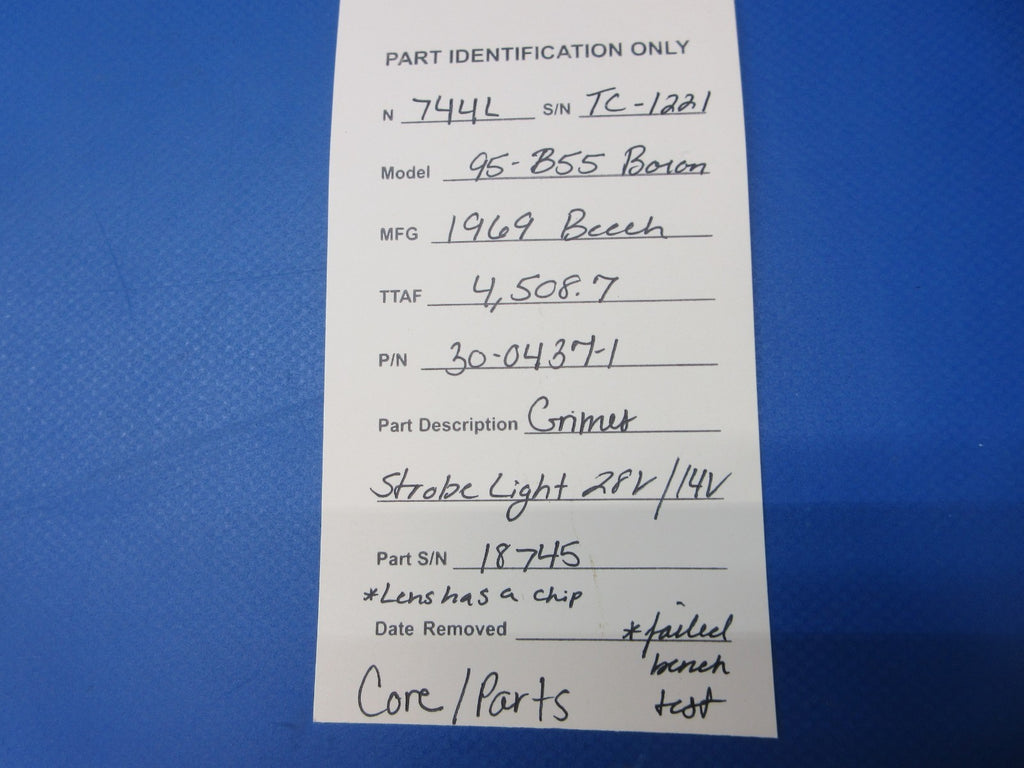 PART IDENTIFICATION ONLY
N 744L S/N TC-1221
Model 95-B55 Baron
MFG 1969 Beech
TTAF 4,508.7
P/N 30-0437-1
Part Description Grimes
Strobe Light 28V/14V
Part S/N 18745
*Lens has a chip
Date Removed *failed
bench
test
Core/Parts